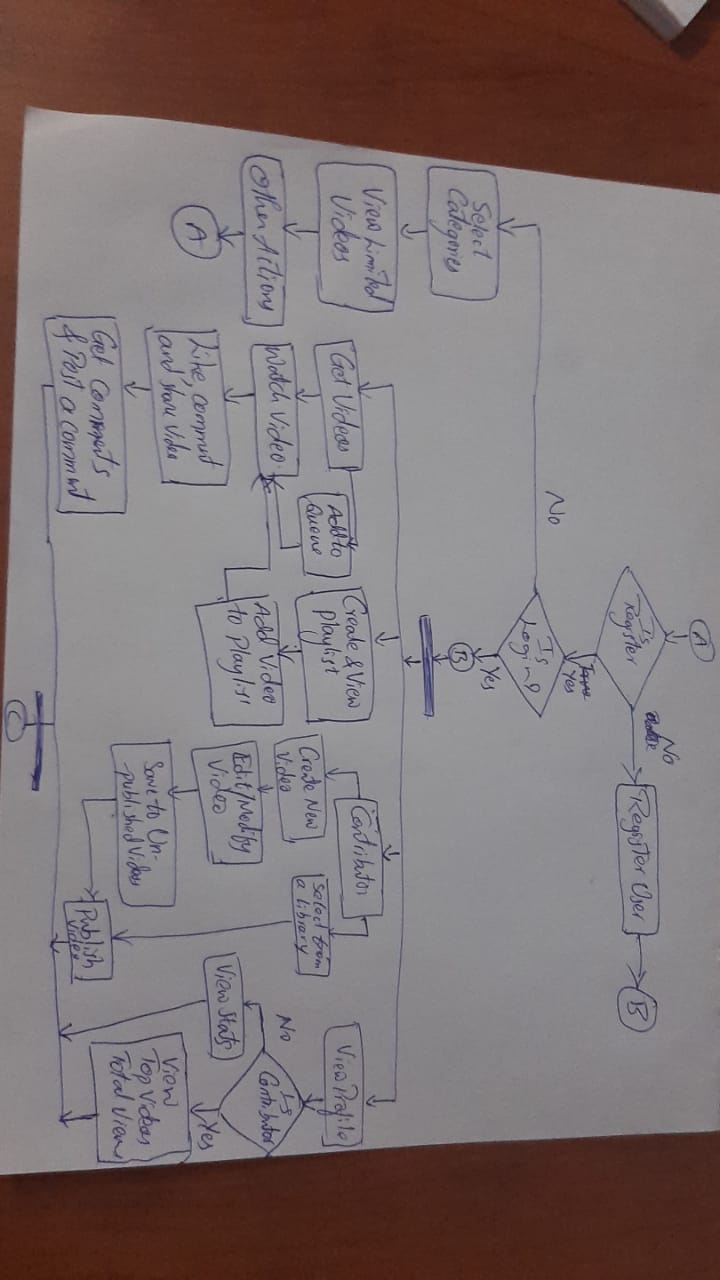 A
No
Is
Register
Register User
B
Yes
No
Is
Login?
Yes
B
Select
Categories
View Limited
Videos
Other Actions
A
Get Videos
Add to
Queue
Watch Video
Like, comment
and share video
Get Comments
& Post a comment
Create & View
Playlist
Add Video
to Playlist
Contributor
Create New
Video
Select from
a library
Edit/Modify
Video
Save to Un-
-published Videos
Publish
Video
View Profile
Is
Contributor
No
View Stats
Yes
View
Top Videos
Total View
C